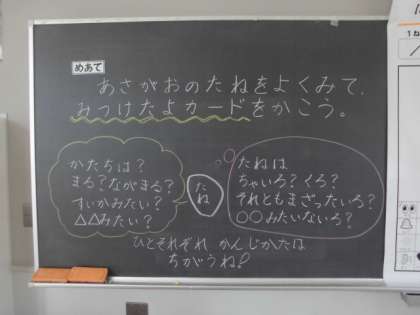 めあて
あさがおのたねをよくみて、
みつけたよカードをかこう。
かたちは？
まる？ながまる？
すいかみたい？
△△みたい？
たね
たねは
ちゃいろ？くろ？
それともまざったいろ？
○○みたいないろ？
ひとそれぞれ かんじかたは
ちがうね！